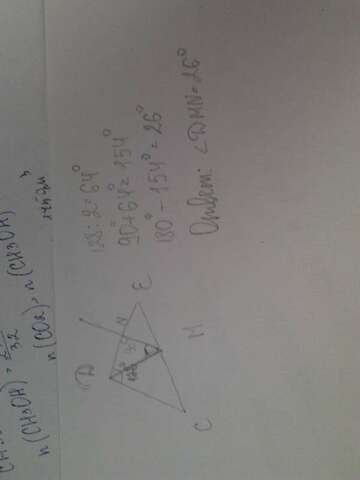 n(CH3OH) =
32
n(CO2) = n(CH3OH)
128 : 2 = 64°
90° + 64° = 154°
180° - 154° = 26°
Ответ: ∠DMN = 26°
D
N
E
M
C